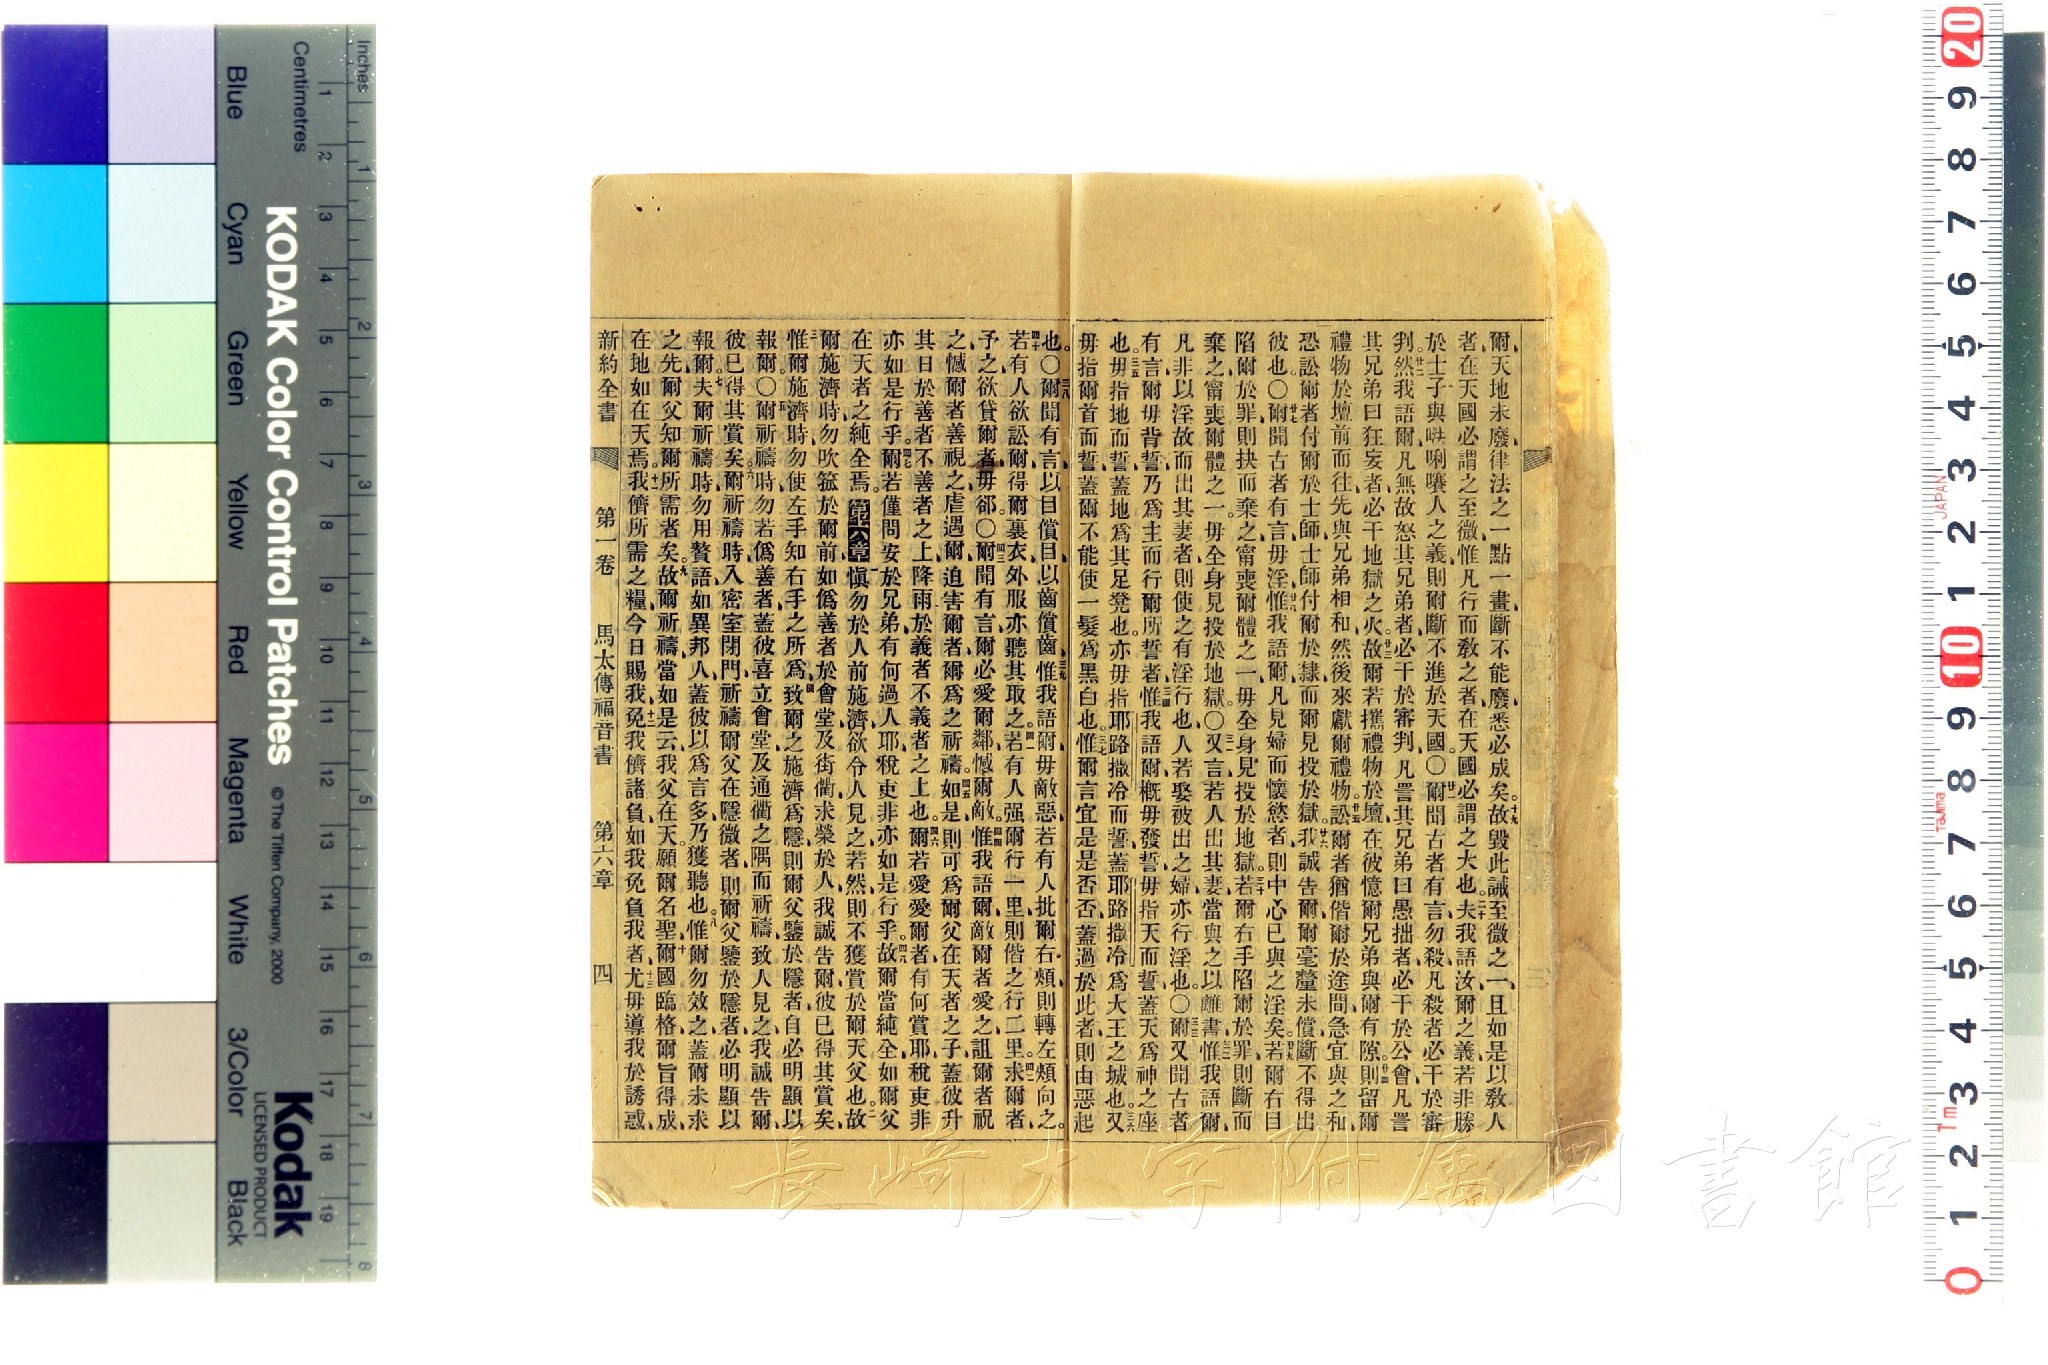 爾、天地未廢、律法之一點一畫、斷不能廢、悉必成矣。十九故毀此誡至微之一、且如是以教人
者、在天國必謂之至微、惟凡行而教之者、在天國必謂之大也。二十夫我語汝、爾之義、若非勝
於士子與唎人之義、則爾斷不進於天國。○廿一爾聞古者有言、勿殺、凡殺者必干於審
判。廿二然我語爾、凡無故怒其兄弟者、必干於審判、凡詈其兄弟曰愚拙者、必干於公會、凡詈
其兄弟曰狂妄者、必干地獄之火。廿三故爾若攜禮物於壇、在彼憶爾兄弟與爾有隙、廿四則留爾
禮物於壇前而往、先與兄弟相和、然後來獻爾禮物。廿五訟爾者猶偕爾於途間、急宜與之和、
恐訟爾者付爾於士師、士師付爾於隸、而爾見投於獄。廿六我誠告爾、爾毫釐未償、斷不得出
彼也。○廿七爾聞古者有言、毋淫、廿八惟我語爾、凡見婦而懷慾者、則中心已與之淫矣。廿九若爾右目
陷爾於罪、則抉而棄之、甯喪爾體之一、毋全身見投於地獄。三十若爾右手陷爾於罪、則斷而
棄之、甯喪爾體之一、毋全身見投於地獄。○三一又言、若人出其妻、當與之以離書、三二惟我語爾、
凡非以淫故而出其妻者、則使之有淫行也、人若娶被出之婦、亦行淫也。○三三爾又聞古者
有言、爾毋背誓、乃爲主而行爾所誓者、三四惟我語爾、槪毋發誓、毋指天而誓、蓋天爲神之座
也、三五毋指地而誓、蓋地爲其足凳也、亦毋指耶路撒冷而誓、蓋耶路撒冷爲大王之城也、三六又
毋指爾首而誓、蓋爾不能使一髮爲黑白也。三七惟爾言宜是是否否、蓋過於此者則由惡起
也。○三八爾聞有言、以目償目、以齒償齒、三九惟我語爾、毋敵惡、若有人批爾右頰、則轉左頰向之。
四十若有人欲訟爾、得爾裏衣、外服亦聽其取之。四一若有人强爾行一里、則偕之行二里。四二求爾者、
予之、欲貸爾者毋郤。○四三爾聞有言、爾必愛爾鄰、憾爾敵、四四惟我語爾、敵爾者愛之、詛爾者祝
之、憾爾者善視之、虐遇爾、迫害爾者、爾爲之祈禱。四五如是、則可爲爾父在天者之子、蓋彼升
其日於善者不善者之上、降雨於義者不義者之上也。四六爾若愛愛爾者、有何賞耶、稅吏非
亦如是行乎。四七爾若僅問安於兄弟、有何過人耶、稅吏非亦如是行乎。四八故爾當純全如爾父
在天者之純全焉。第六章一愼勿於人前施濟、欲令人見之、若然、則不獲賞於爾天父也。二故
爾施濟時、勿吹箛於爾前、如僞善者於會堂及街衢、求榮於人、我誠告爾、彼已得其賞矣。
三惟爾施濟時、勿使左手知右手之所爲、四致爾之施濟爲隱、則爾父鑒於隱者、自必明顯以
報爾。○五爾祈禱時、勿若僞善者、蓋彼喜立會堂及通衢之隅而祈禱、致人見之、我誠告爾、
彼已得其賞矣。六爾祈禱時、入密室、閉門、祈禱爾父在隱微者、則爾父鑒於隱者、必明顯以
報爾。七夫爾祈禱時、勿用贅語、如異邦人、蓋彼以爲言多乃獲聽也。八惟爾勿效之、蓋爾未求
之先、爾父知爾所需者矣。九故爾祈禱當如是云、我父在天、願爾名聖、十爾國臨格、爾旨得成、
在地如在天焉。十一我儕所需之糧、今日賜我、十二免我儕諸負、如我免負我者、十三尤毋導我於誘惑、
新約全書 第一卷 馬太傳福音書 第六章 四
Inches 1 2 3 4 5 6 7 8
Centimetres 1 2 3 4 5 6 7 8 9 10 11 12 13 14 15 16 17 18 19
Blue Cyan Green Yellow Red Magenta White 3/Color Black
KODAK Color Control Patches © The Tiffen Company, 2000
Kodak
LICENSED PRODUCT
20 9 8 7 6 5 4 3 2 1 10 9 8 7 6 5 4 3 2 1 0
JAPAN
Tajima
Tm
長崎大学附属図書館